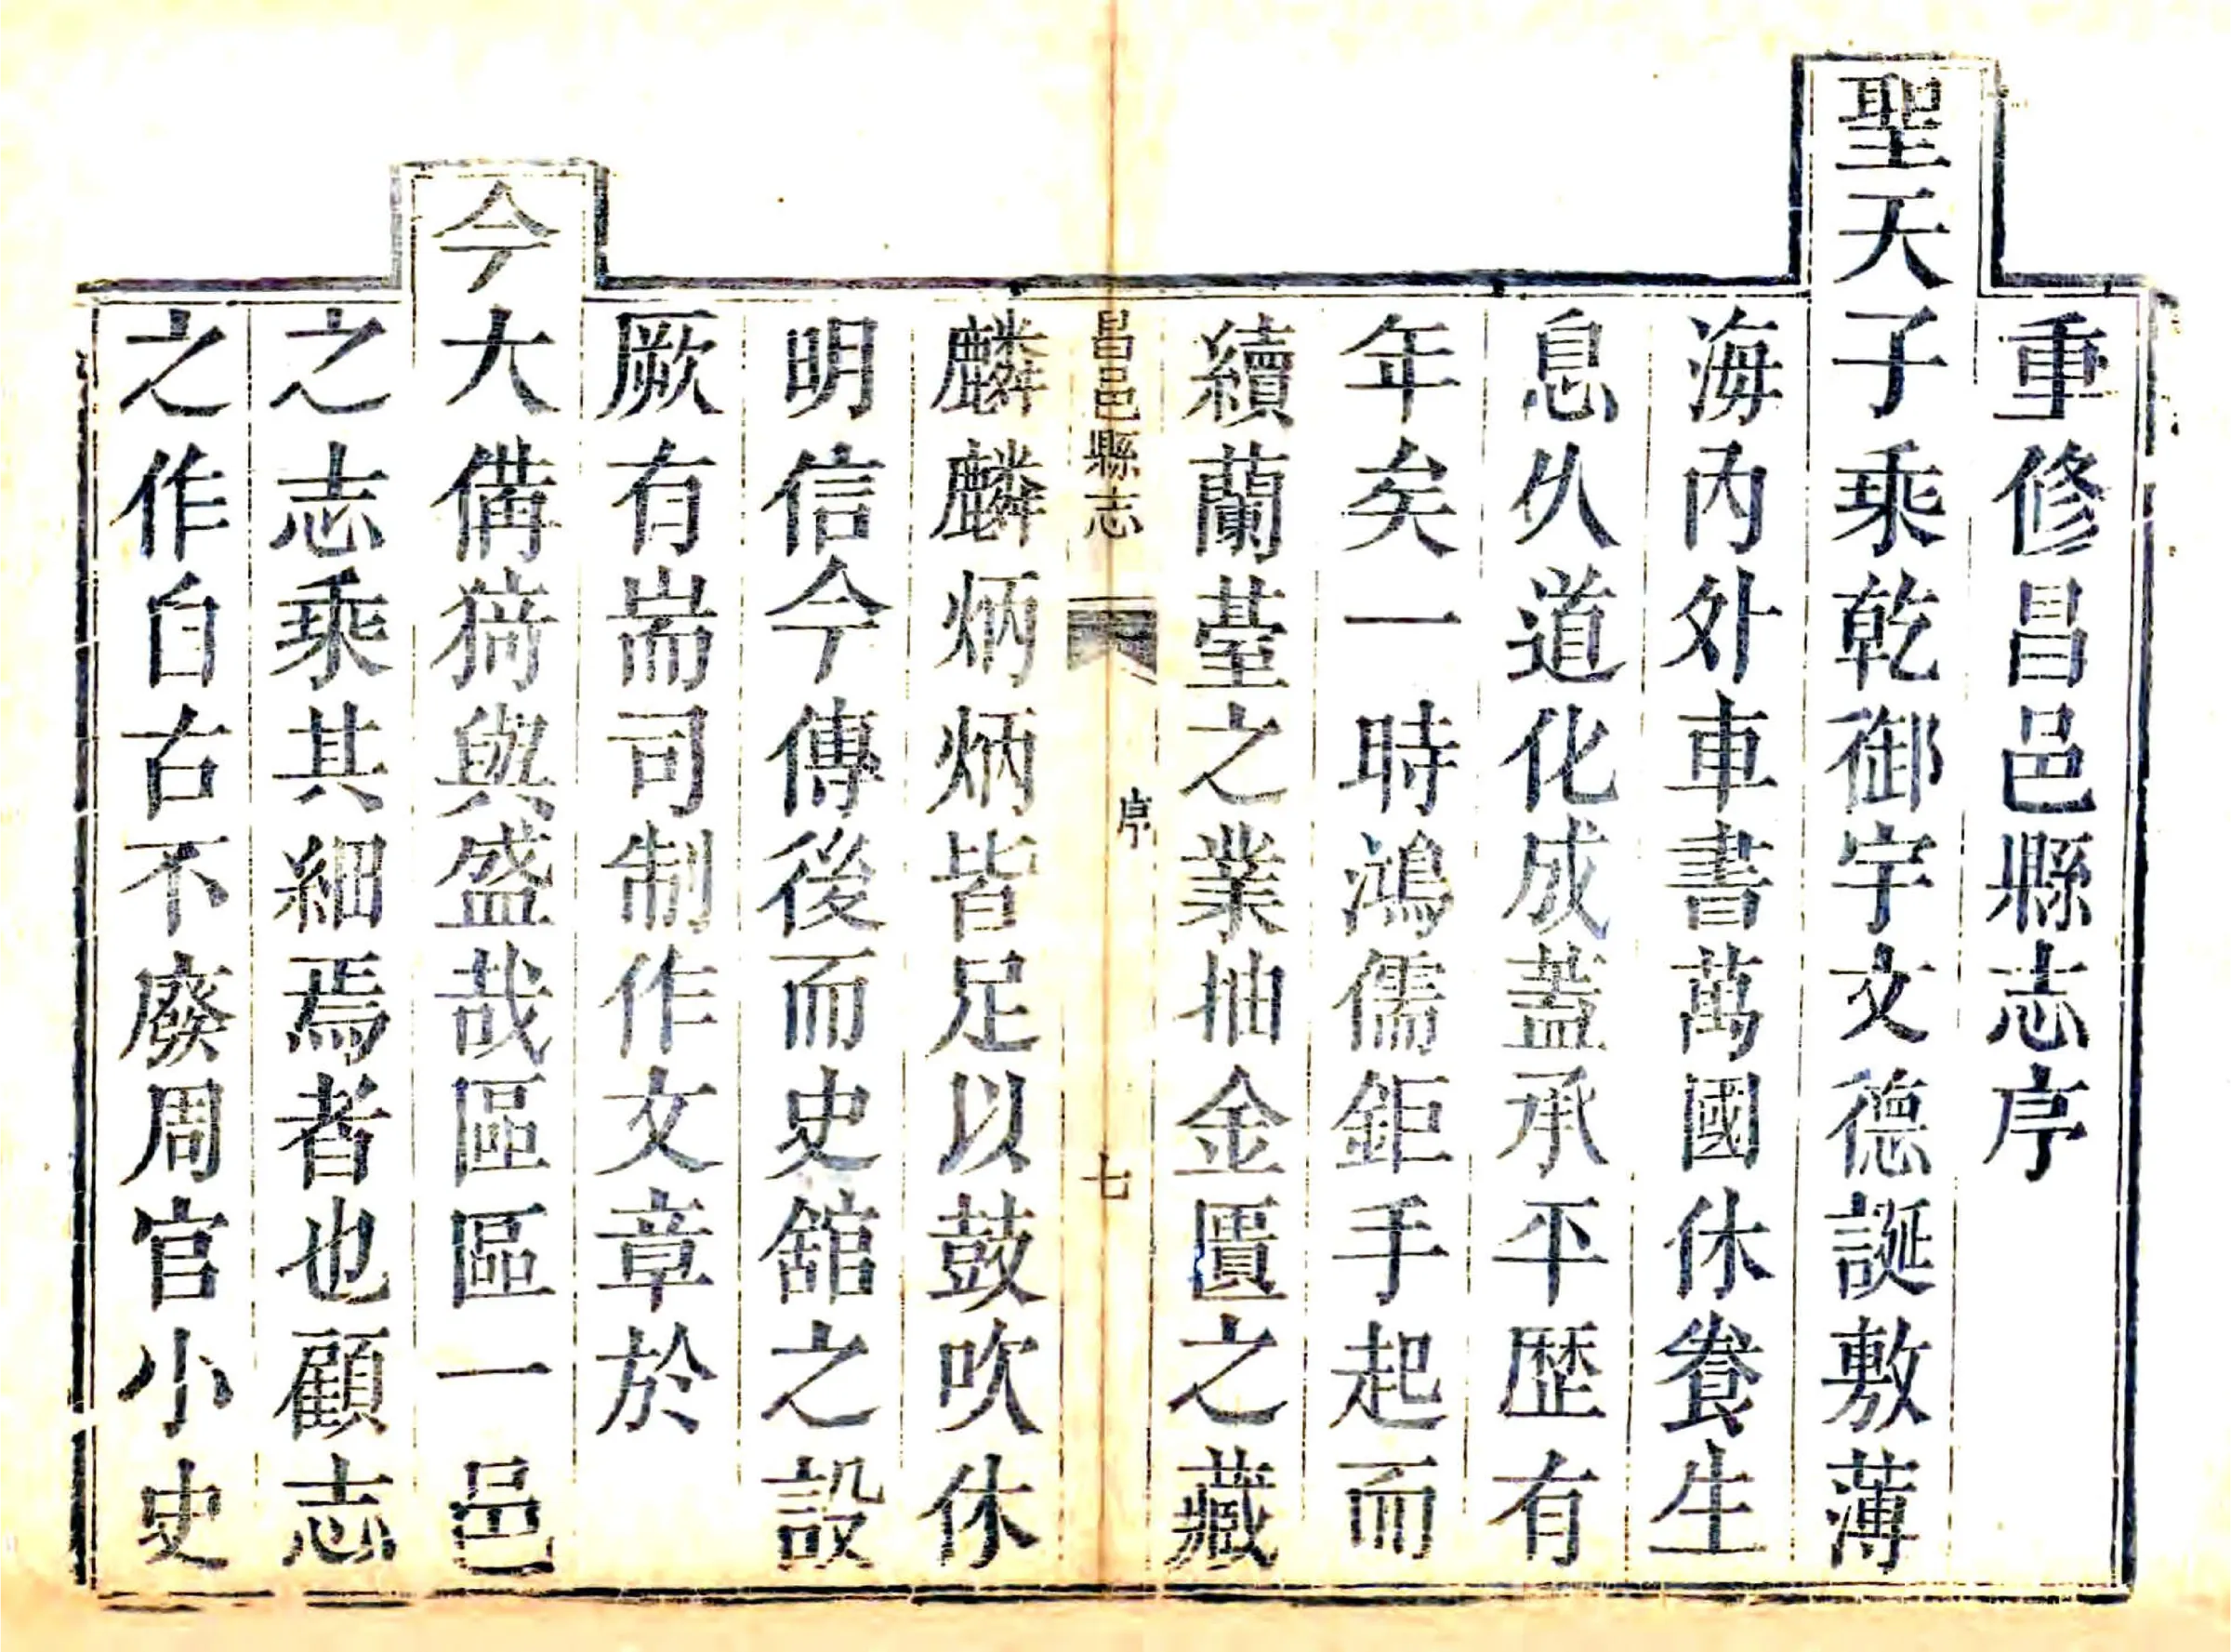 重修昌邑縣志序
聖天子乘乾御宇文德誕敷薄
海內外車書萬國休養生
息久道化成蓋承平歷有
年矣一時鴻儒鉅手起而
續蘭臺之業抽金匱之藏
昌邑縣志 序 七
麟麟炳炳皆足以鼓吹休
明信今傳後而史舘之設
厥有耑司制作文章於
今大備猗與盛哉區區一邑
之志乘其細焉者也顧志
之作自古不廢周官小史